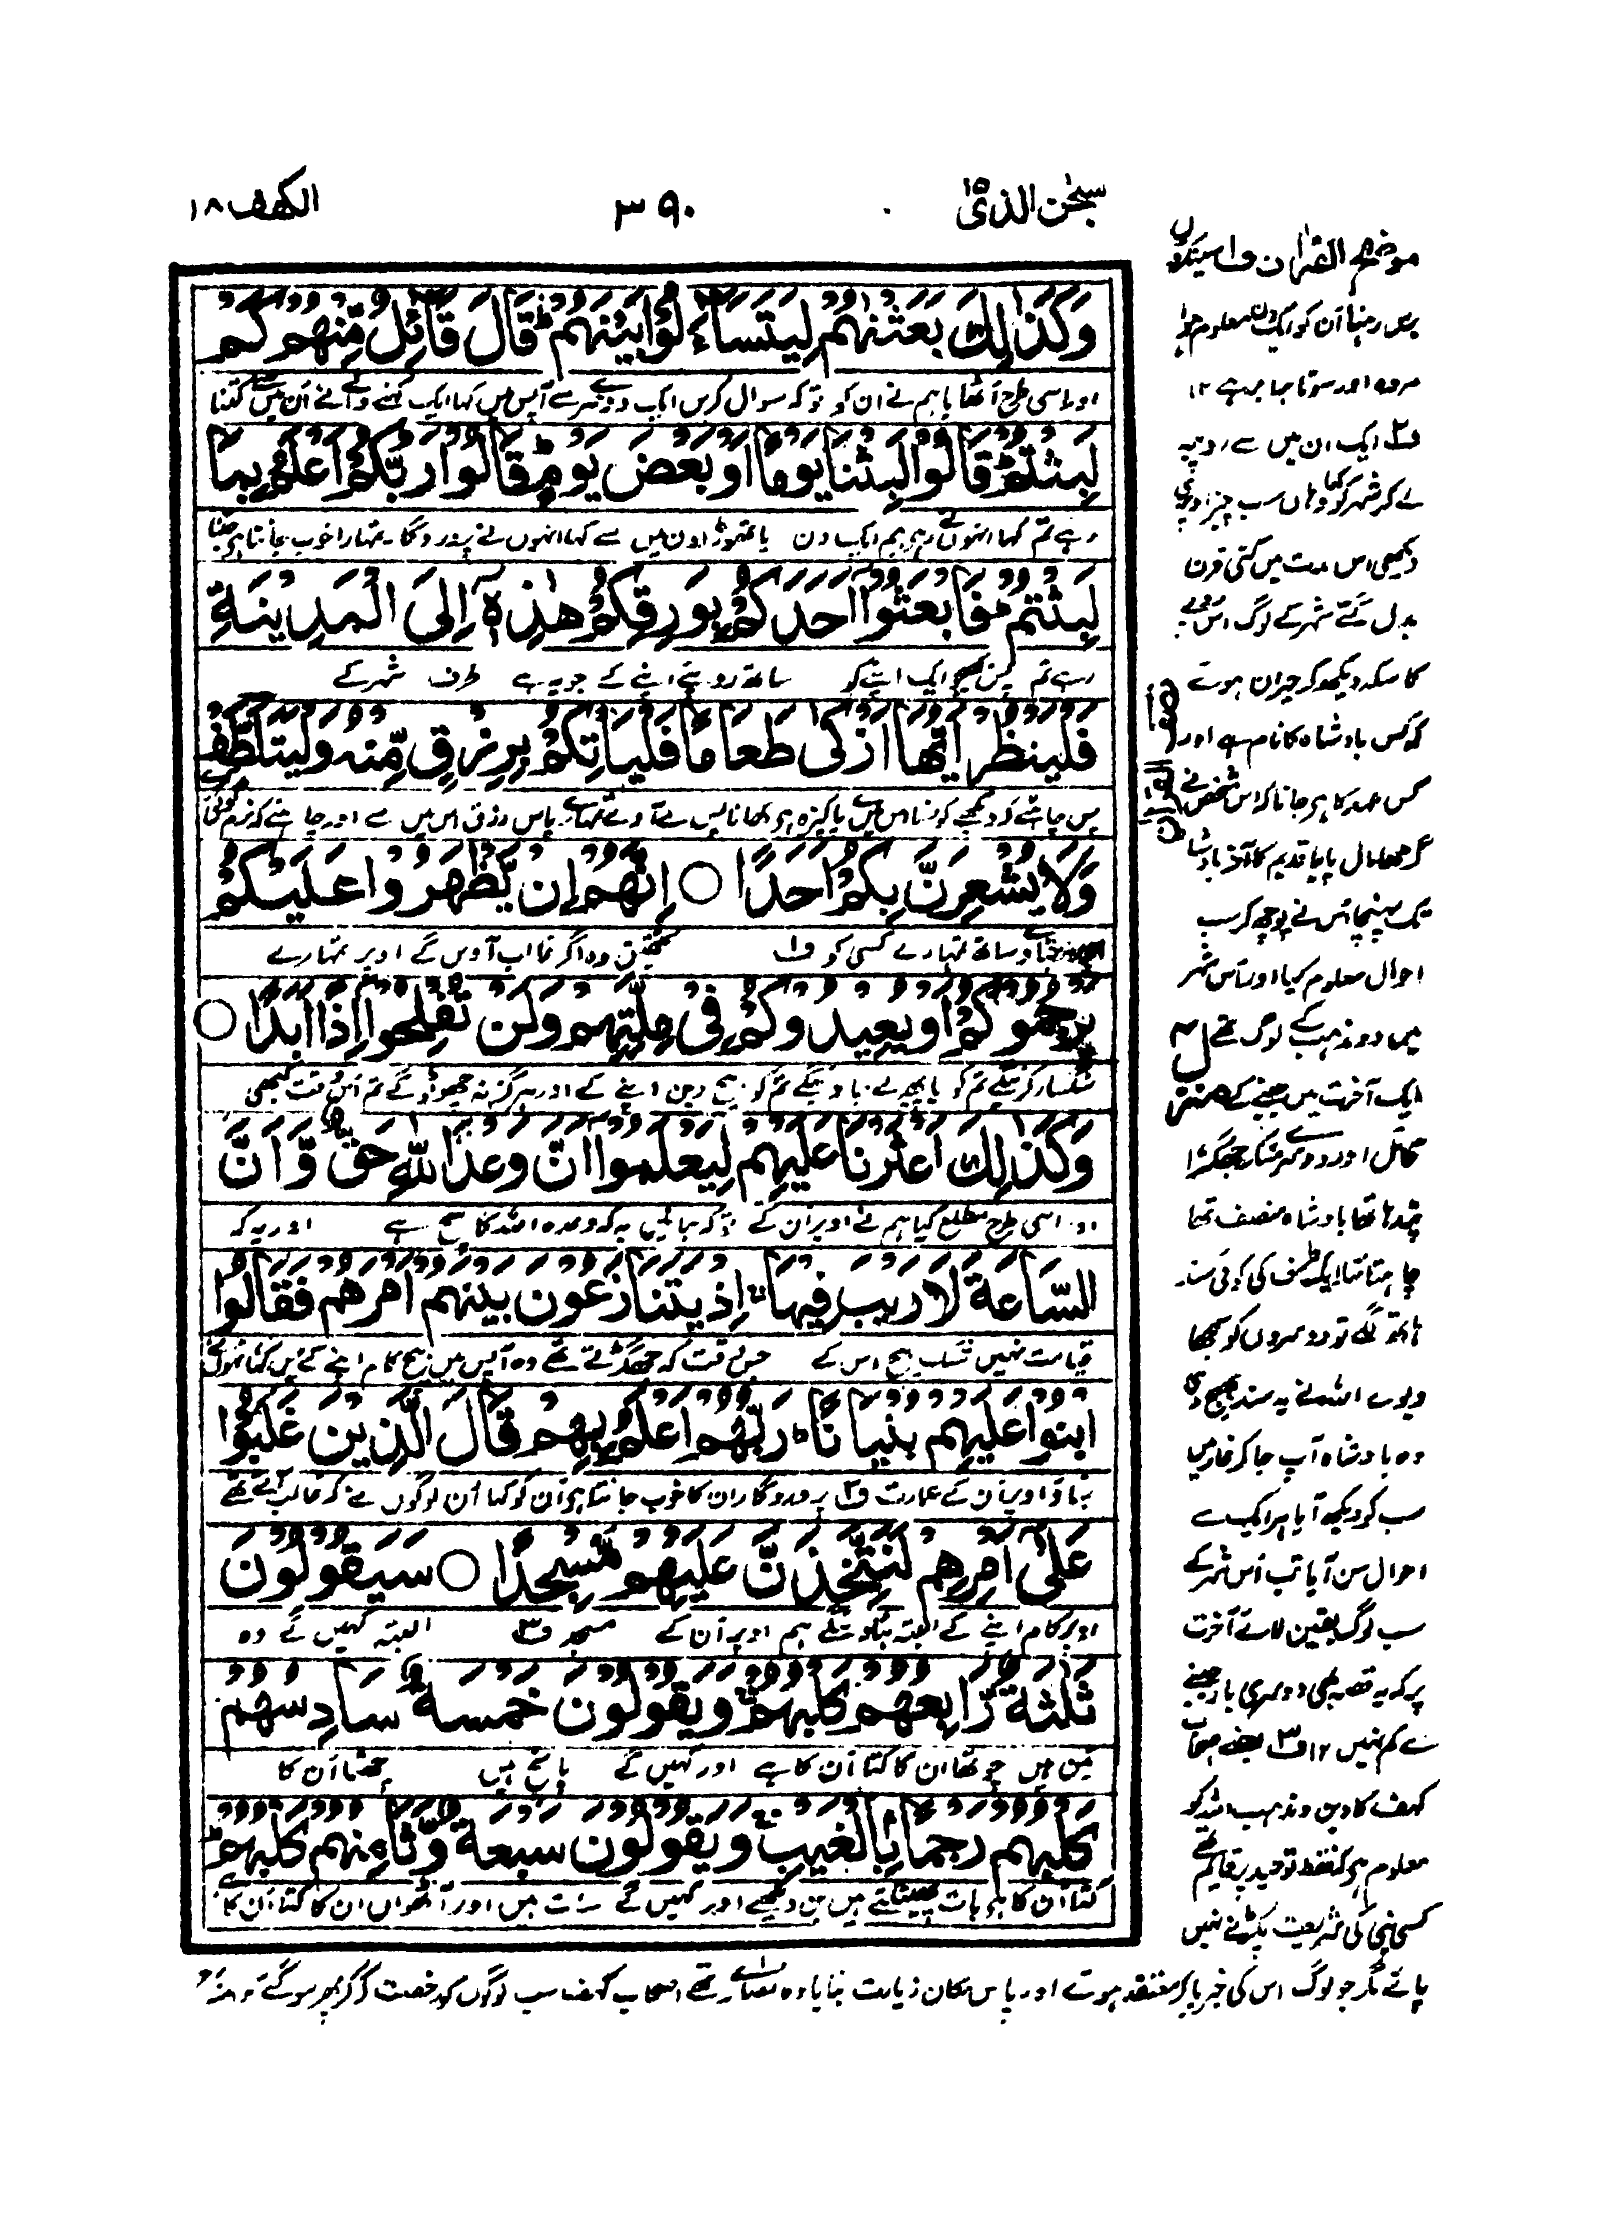 سبحٰن الذیٓ ١٥
٣٩٠
الكهف ١٨
وَكَذٰلِكَ بَعَثْنٰهُمْ لِيَتَسَآءَلُوْا بَيْنَهُمْ ؕ قَالَ قَآئِلٌ مِّنْهُمْ كَمْ
اور اسی طرح اٹھایا ہم نے ان کو توکہ سوال کریں ایک دوسرے آپس میں کہا ایک کہنے والے نے ان میں سے کتنا
لَبِثْتُمْ ؕ قَالُوْا لَبِثْنَا يَوْمًا اَوْ بَعْضَ يَوْمٍ ؕ قَالُوْا رَبُّكُمْ اَعْلَمُ بِمَا
رہے تم کہا انہوں نے رہے ہم ایک دن یا تھوڑا دن میں سے کہا انہوں نے پروردگار تمہارا خوب جانتا ہے جتنا
لَبِثْتُمْ ؕ فَابْعَثُوْٓا اَحَدَكُمْ بِوَرِقِكُمْ هٰذِهٖٓ اِلَى الْمَدِيْنَةِ
رہے تم پس بھیجو ایک اپنے کو ساتھ روپے اپنے کے جو یہ ہے طرف شہر کے
فَلْيَنْظُرْ اَيُّهَآ اَزْكٰى طَعَامًا فَلْيَاْتِكُمْ بِرِزْقٍ مِّنْهُ وَلْيَتَلَطَّفْ
پس چاہئے کہ دیکھے کونسا ان میں پاکیزہ ہے کھانا پس لے آوے تمہارے پاس رزق اس میں سے اور چاہئے کہ نرم گوئی کرے
وَلَا يُشْعِرَنَّ بِكُمْ اَحَدًا ○ اِنَّهُمْ اِنْ يَّظْهَرُوْا عَلَيْكُمْ
ساتھ تمہارے کسی کو ف١ تحقیق وہ اگر غالب آویں گے اوپر تمہارے
يَرْجُمُوْكُمْ اَوْ يُعِيْدُوْكُمْ فِيْ مِلَّتِهِمْ وَلَنْ تُفْلِحُوْٓا اِذًا اَبَدًا ○
سنگسار کرینگے تم کو یا پھیر لے جاوینگے تم کو بیچ دین اپنے کے اور ہرگز نہ چھوٹو گے تم اس وقت کبھی
وَكَذٰلِكَ اَعْثَرْنَا عَلَيْهِمْ لِيَعْلَمُوْٓا اَنَّ وَعْدَ اللّٰهِ حَقٌّ وَّاَنَّ
اور اسی طرح مطلع کیا ہم نے اوپر ان کے توکہ جانیں یہ کہ وعدہ اللہ کا سچ ہے اور یہ کہ
السَّاعَةَ لَا رَيْبَ فِيْهَا ۚ اِذْ يَتَنَازَعُوْنَ بَيْنَهُمْ اَمْرَهُمْ فَقَالُوا
قیامت نہیں شک بیچ اس کے جس وقت کہ جھگڑتے تھے وہ آپس میں بیچ کام اپنے کے پس کہا انہوں نے
ابْنُوْا عَلَيْهِمْ بُنْيَانًا ؕ رَبُّهُمْ اَعْلَمُ بِهِمْ ؕ قَالَ الَّذِيْنَ غَلَبُوْا
بناؤ اوپر ان کے عمارت ف٢ پروردگار ان کا خوب جانتا ہے ان کو کہا ان لوگوں نے کہ غالب آئے تھے
عَلٰٓى اَمْرِهِمْ لَنَتَّخِذَنَّ عَلَيْهِمْ مَّسْجِدًا ○ سَيَقُوْلُوْنَ
اوپر کام اپنے کے البتہ بناوینگے ہم اوپر ان کے مسجد ف٣ البتہ کہیں گے وہ
ثَلٰثَةٌ رَّابِعُهُمْ كَلْبُهُمْ ۚ وَيَقُوْلُوْنَ خَمْسَةٌ سَادِسُهُمْ
تین ہیں چوتھا ان کا کتا ان کا ہے اور کہیں گے پانچ ہیں چھٹا ان کا
كَلْبُهُمْ رَجْمًۢا بِالْغَيْبِ ۚ وَيَقُوْلُوْنَ سَبْعَةٌ وَّثَامِنُهُمْ كَلْبُهُمْ ؕ
کتا ان کا ہے بات پھینکتے ہیں بن دیکھے اور کہیں گے سات ہیں اور آٹھواں ان کا کتا ان کا
موضح القرآن ف١ سینکڑوں
برس رہنا ان کو ایک دن معلوم ہوا
مردہ اور سوتا برابر ہے ١٢
ف٢ ایک ان میں سے روپیہ
لے کر شہر کو گیا وہاں سب چیز اوپری
دیکھی اس مدت میں کئی قرن
بدل گئے شہر کے لوگ اس روپے
کا سکہ دیکھ کر حیران ہوئے
کہ کس بادشاہ کا نام ہے اور
کس عہد کا ہے جانا کہ اس شخص نے
گڑھا مال پایا قدیم کا آخر بادشاہ
تک پہنچا اس نے پوچھ کر سب
احوال معلوم کیا اور اس شہر
میں دو مذہب کے لوگ تھے
ایک آخرت میں جینے کے
قائل اور دوسرے منکر جھگڑا
پڑ رہا تھا بادشاہ منصف تھا
چاہتا تھا ایک طرف کی کوئی سند
ہاتھ لگے تو دوسروں کو سمجھا
دیوے اللہ نے یہ سند بھیج دی
وہ بادشاہ آپ جا کر غار میں
سب کو دیکھ آیا ہر ایک سے
احوال سن آیا تب اس شہر کے
سب لوگ یقین لائے آخرت
پر کہ یہ قصہ بھی دوسری بار جینے
سے کم نہیں ١٢ ف٣ یعنے اصحاب
کہف کا دین و مذہب اللہ کو
معلوم ہے کہ فقط توحید پر قائم تھے
کسی نبی کی شریعت پکڑنے نہیں
پائے مگر جو لوگ اس کی خبر پا کر معتقد ہوئے اور پاس مکان زیارت بنایا وہ نصاریٰ تھے اصحاب کہف سب لوگوں کو رخصت کر کر پھر سو گئے